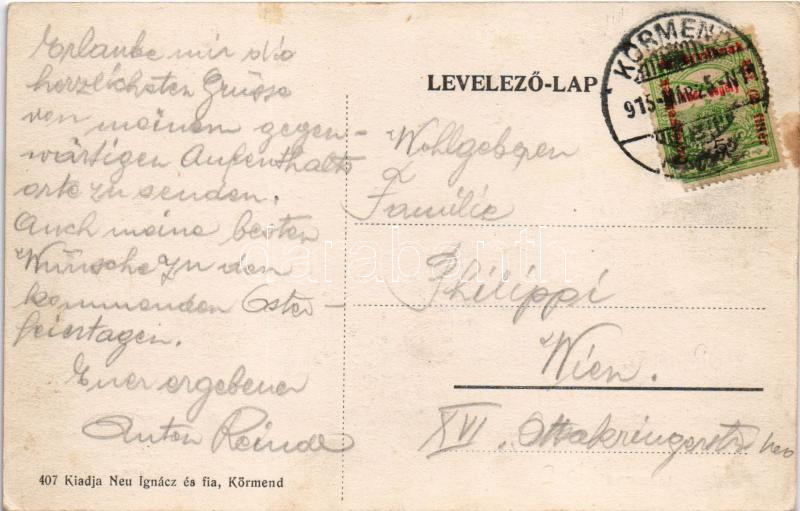 Erlaube mir die
herzlichsten Grüsse
von meinem gegen-
wärtigen Aufenthalts
orte zu senden.
Auch meine besten
Wünsche zu den
kommenden Oster-
feiertagen.
Euer ergebener
Anton
407 Kiadja Neu Ignácz és fia, Körmend
LEVELEZŐ-LAP
KÖRMEND
915 MÁR 25
Wohlgeboren
Familie
Philippi
Wien.
XVI. Ottakringerstr
darabanth